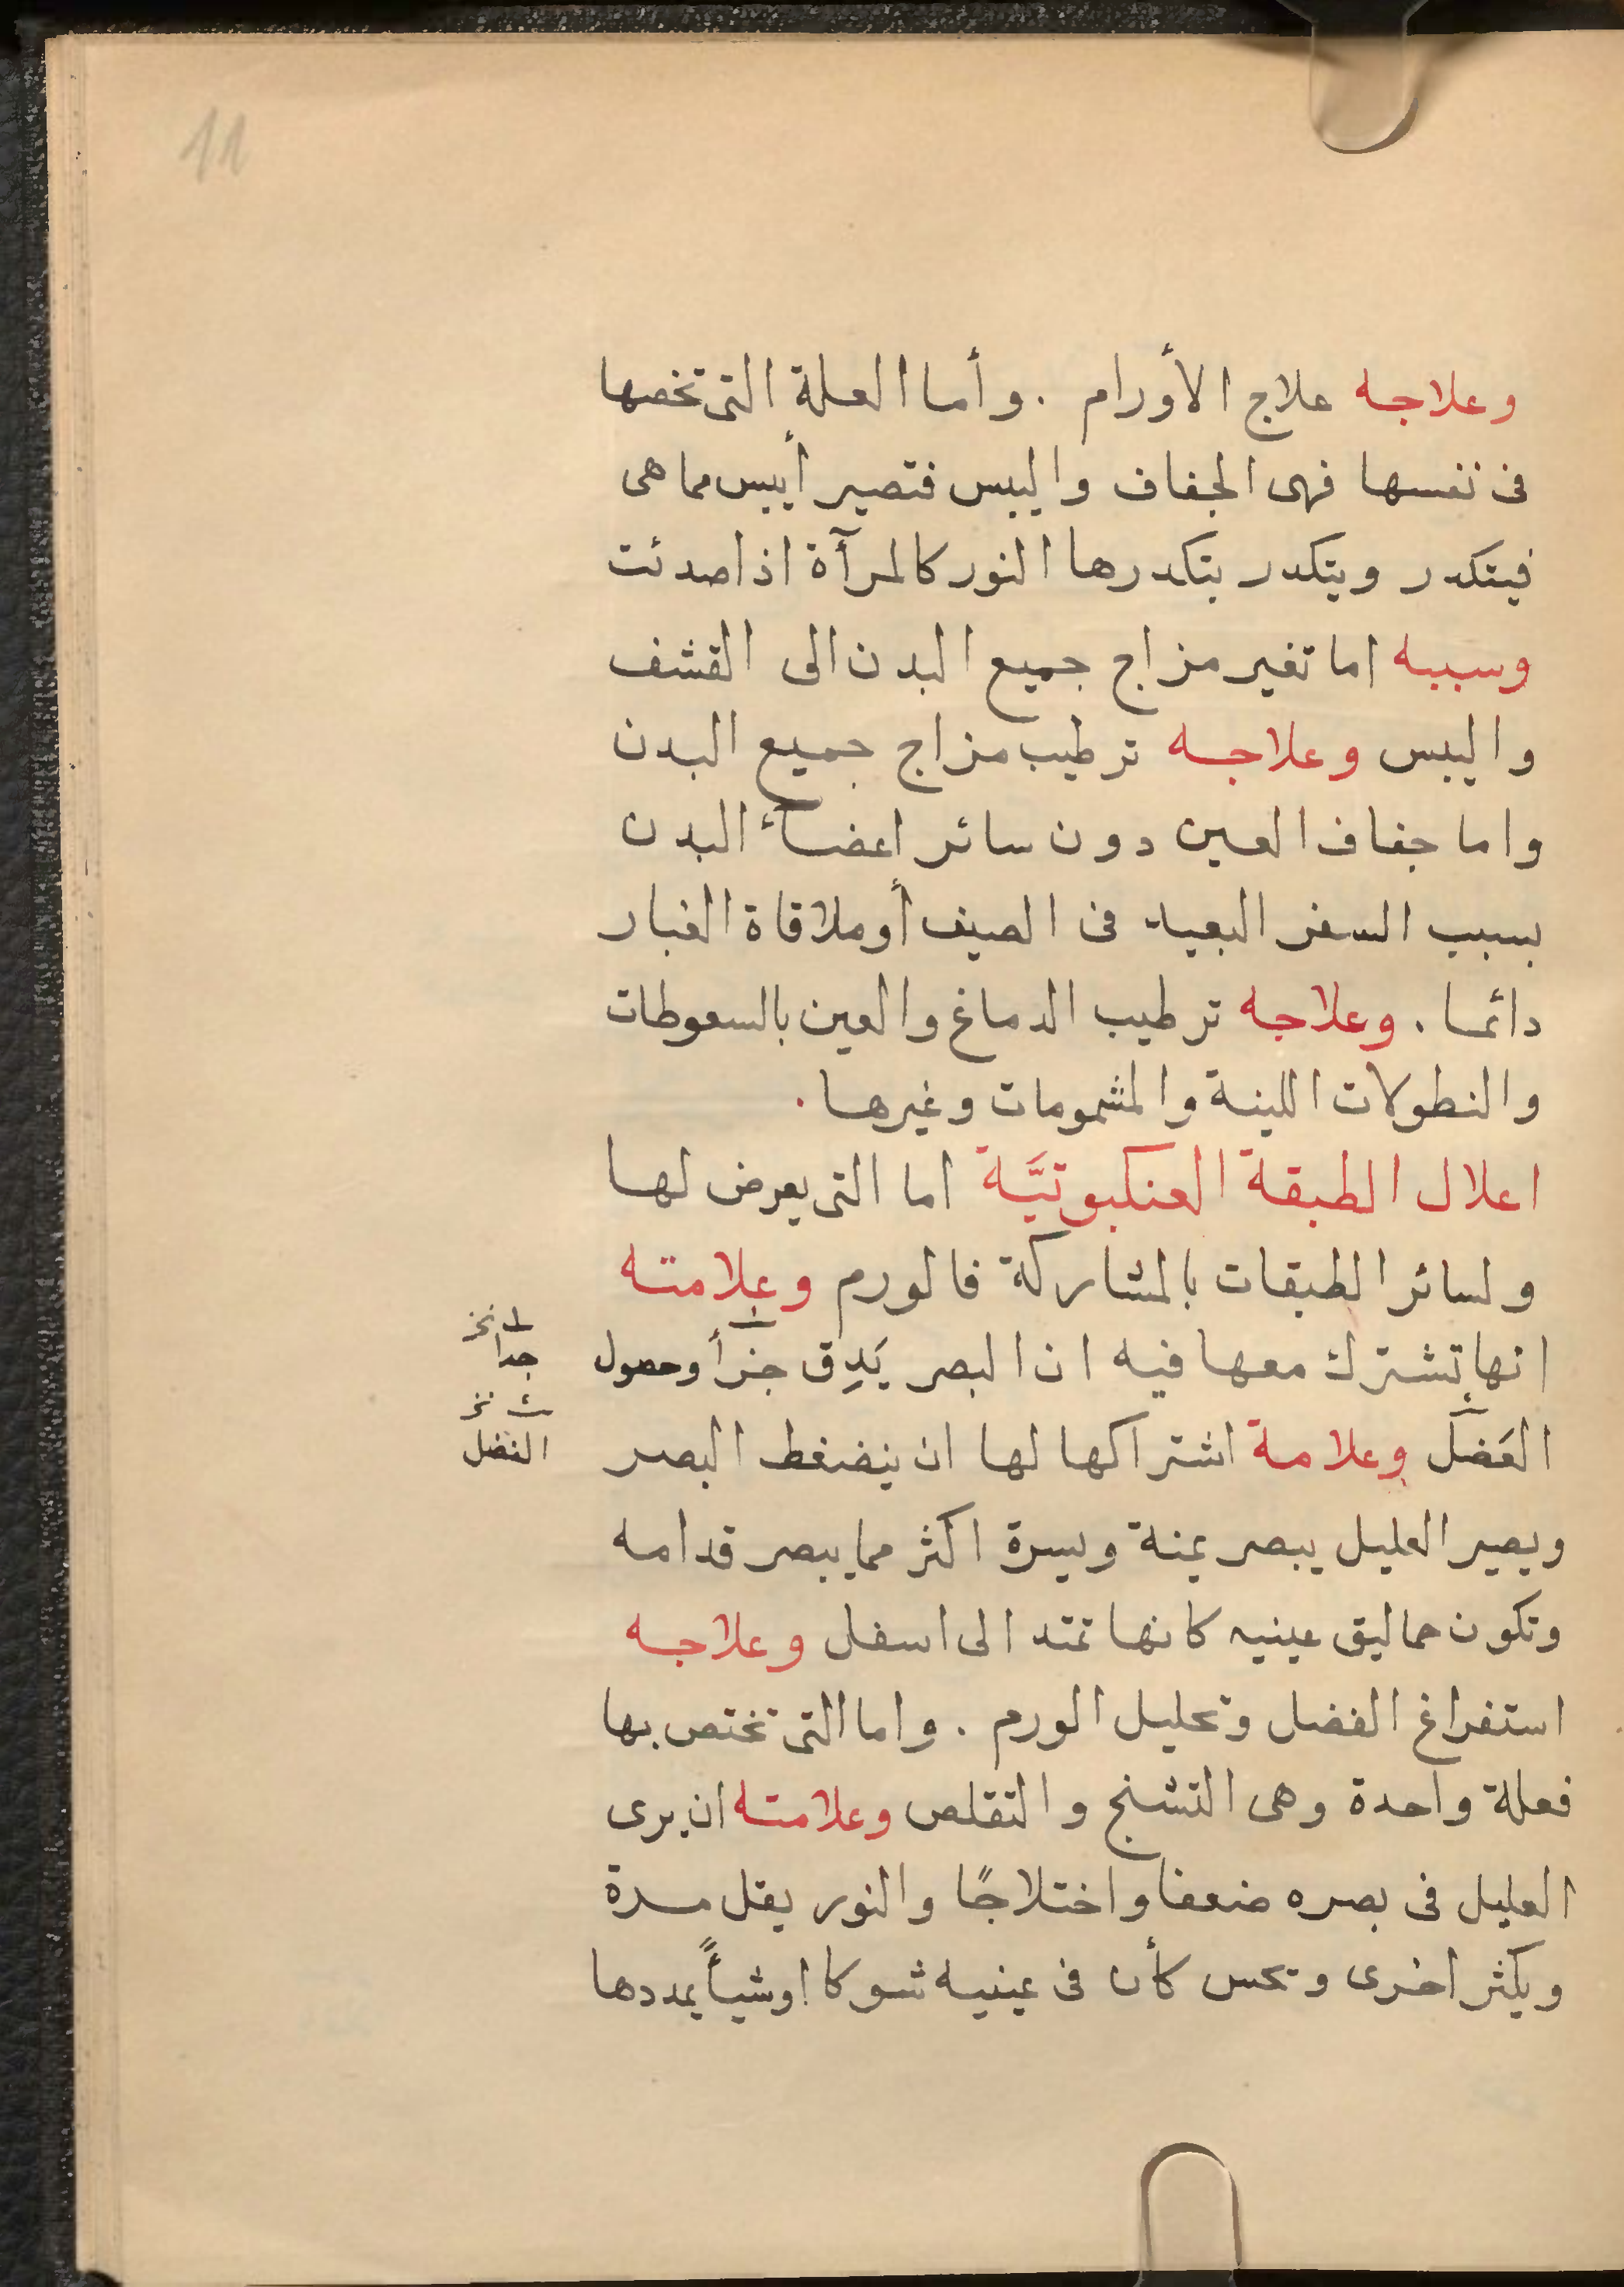 11
وعلاجه علاج الأورام . وأما العلة التى تخصها
فى نفسها فهى الجفاف واليبس فتصير أيبس مما هى
فيتكدر ويتكدر بتكدرها النور كالمرآة اذا صدئت
وسببه اما تغير مزاج جميع البدن الى القشف
واليبس وعلاجه ترطيب مزاج جميع البدن
واما جفاف العين دون سائر اعضاء البدن
بسبب السفر البعيد فى الصيف أو ملاقاة الغبار
دائما . وعلاجه ترطيب الدماغ والعين بالسعوطات
والنطولات اللينة والمشمومات وغيرها .
اعلال الطبقة العنكبوتيَّة اما التى يعرض لها
ولسائر الطبقات بالمشاركة فالورم وعلامته
انها تشترك معها فيه ان البصر يَدِق جزأ وحصول
جدا
العَضَل وعلامة اشتراكها لها ان ينضغط البصر
الفضل
ويصير العليل يبصر يمنة ويسرة اكثر مما يبصر قدامه
وتكون حماليق عينيه كانها تمتد الى اسفل وعلاجه
استفراغ الفضل وتحليل الورم . واما التى تختص بها
فعلة واحدة وهى التشنج والتقلص وعلامته ان يرى
العليل فى بصره ضعفا واختلاجًا والنور يقل مرة
ويكثر اخرى وتحس كأن فى عينيه شوكا او شيأً يمددها